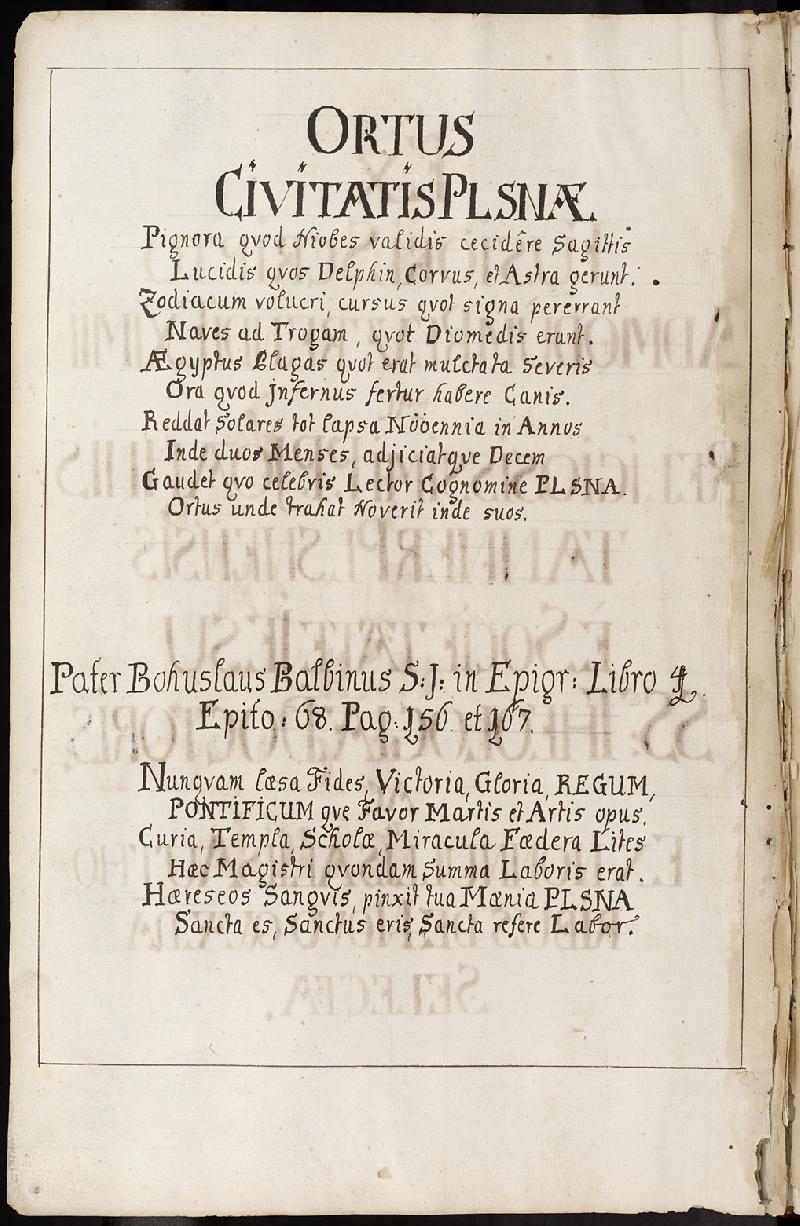 ORTUS
CIVITATIS PLSNÆ
Pignora qvod Niobes validis cecidêre Sagittis
Lucidis qvos Delphin, Corvus, et Astra gerunt.
Zodiacum volucri, cursus qvot signa pererrant
Naves ad Trogam, qvot Diomedis erant.
Ægyptus Plagas qvot erat mulctata Severis
Ora qvod jnfernus fertur habere Canis.
Reddat Solares tot lapsa Novennia in Annos
Inde duos Menses, adjiciatqve Decem
Gaudet qvo celebris Lector Cognomine PLSNA.
Ortus unde trahat Noverit inde suos.
Pater Bohuslaus Balbinus S:J: in Epigr: Libro 4
Epito: 68. Pag: 156 et 167.
Nunqvam læsa Fides, Victoria, Gloria, REGUM,
PONTIFICUM qve Favor Martis et Artis opus,
Curia, Templa, Scholæ, Miracula Fædera Lites
Hæc Magistri qvondam Summa Laboris erat.
Hæreseos Sangvis, pinxit tua Mænia PLSNA
Sancta es, Sanctus eris, Sancta refere Labor.